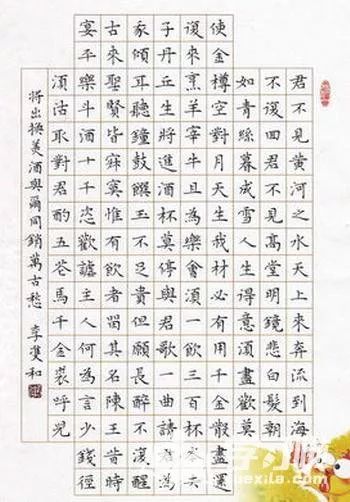 君不見黃河之水天上來奔流到海
不復回君不見高堂明鏡悲白髮朝
如青絲暮成雪人生得意須盡歡莫
使金樽空對月天生我材必有用千金散盡還
復來烹羊宰牛且為樂會須一飲三百杯岑夫
子丹丘生將進酒杯莫停與君歌一曲請君為
我傾耳聽鐘鼓饌玉不足貴但願長醉不復醒
古來聖賢皆寂寞惟有飲者留其名陳王昔時
宴平樂斗酒十千恣歡謔主人何為言少錢徑
須沽取對君酌五花馬千金裘呼兒
將出換美酒與爾同銷萬古愁 李雙和